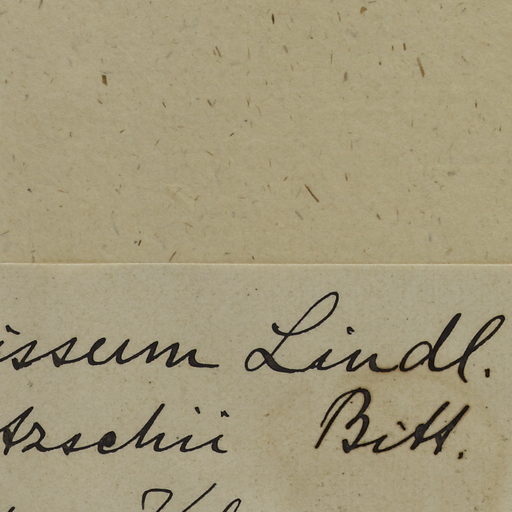 issum Lindl.
tzschii Bitt.